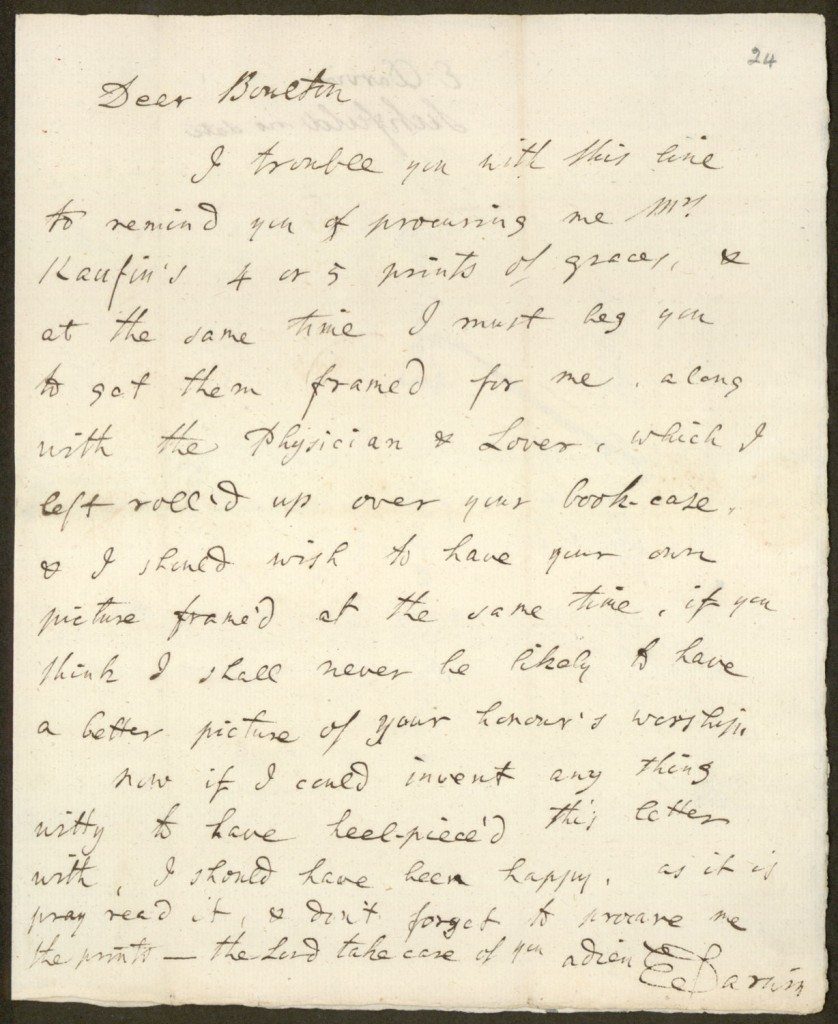 24
Dear Boulton
I trouble you with this line
to remind you of procuring me Mrs.
Kaufin's 4 or 5 prints of graces, &
at the same time I must beg you
to get them framed for me, along
with the Physician & Lover, which I
left roll'd up over your book-case,
& I should wish to have your own
picture frame'd at the same time, if you
think I shall never be likely to have
a better picture of your honour's worship.
now if I could invent any thing
witty to have heel-piece'd this letter
with, I should have been happy. as it is
pray read it, & don't forget to procure me
the prints — the Lord take care of you adieu E Darwin